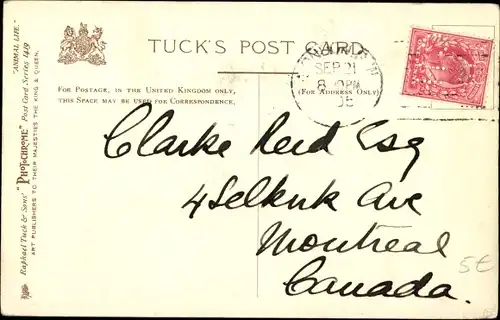 TUCK'S POST CARD
SEP 21
8
FOR POSTAGE, IN THE UNITED KINGDOM ONLY,
THIS SPACE MAY BE USED FOR CORRESPONDENCE.
(FOR ADDRESS ONLY)
Clarke Reid Esq
4 Selkirk Ave
Montreal
Canada.
5€
"ANIMAL LIFE."
Raphael Tuck & Sons' "PHOTOCHROME" Post Card Series 1419
ART PUBLISHERS TO THEIR MAJESTIES THE KING & QUEEN.